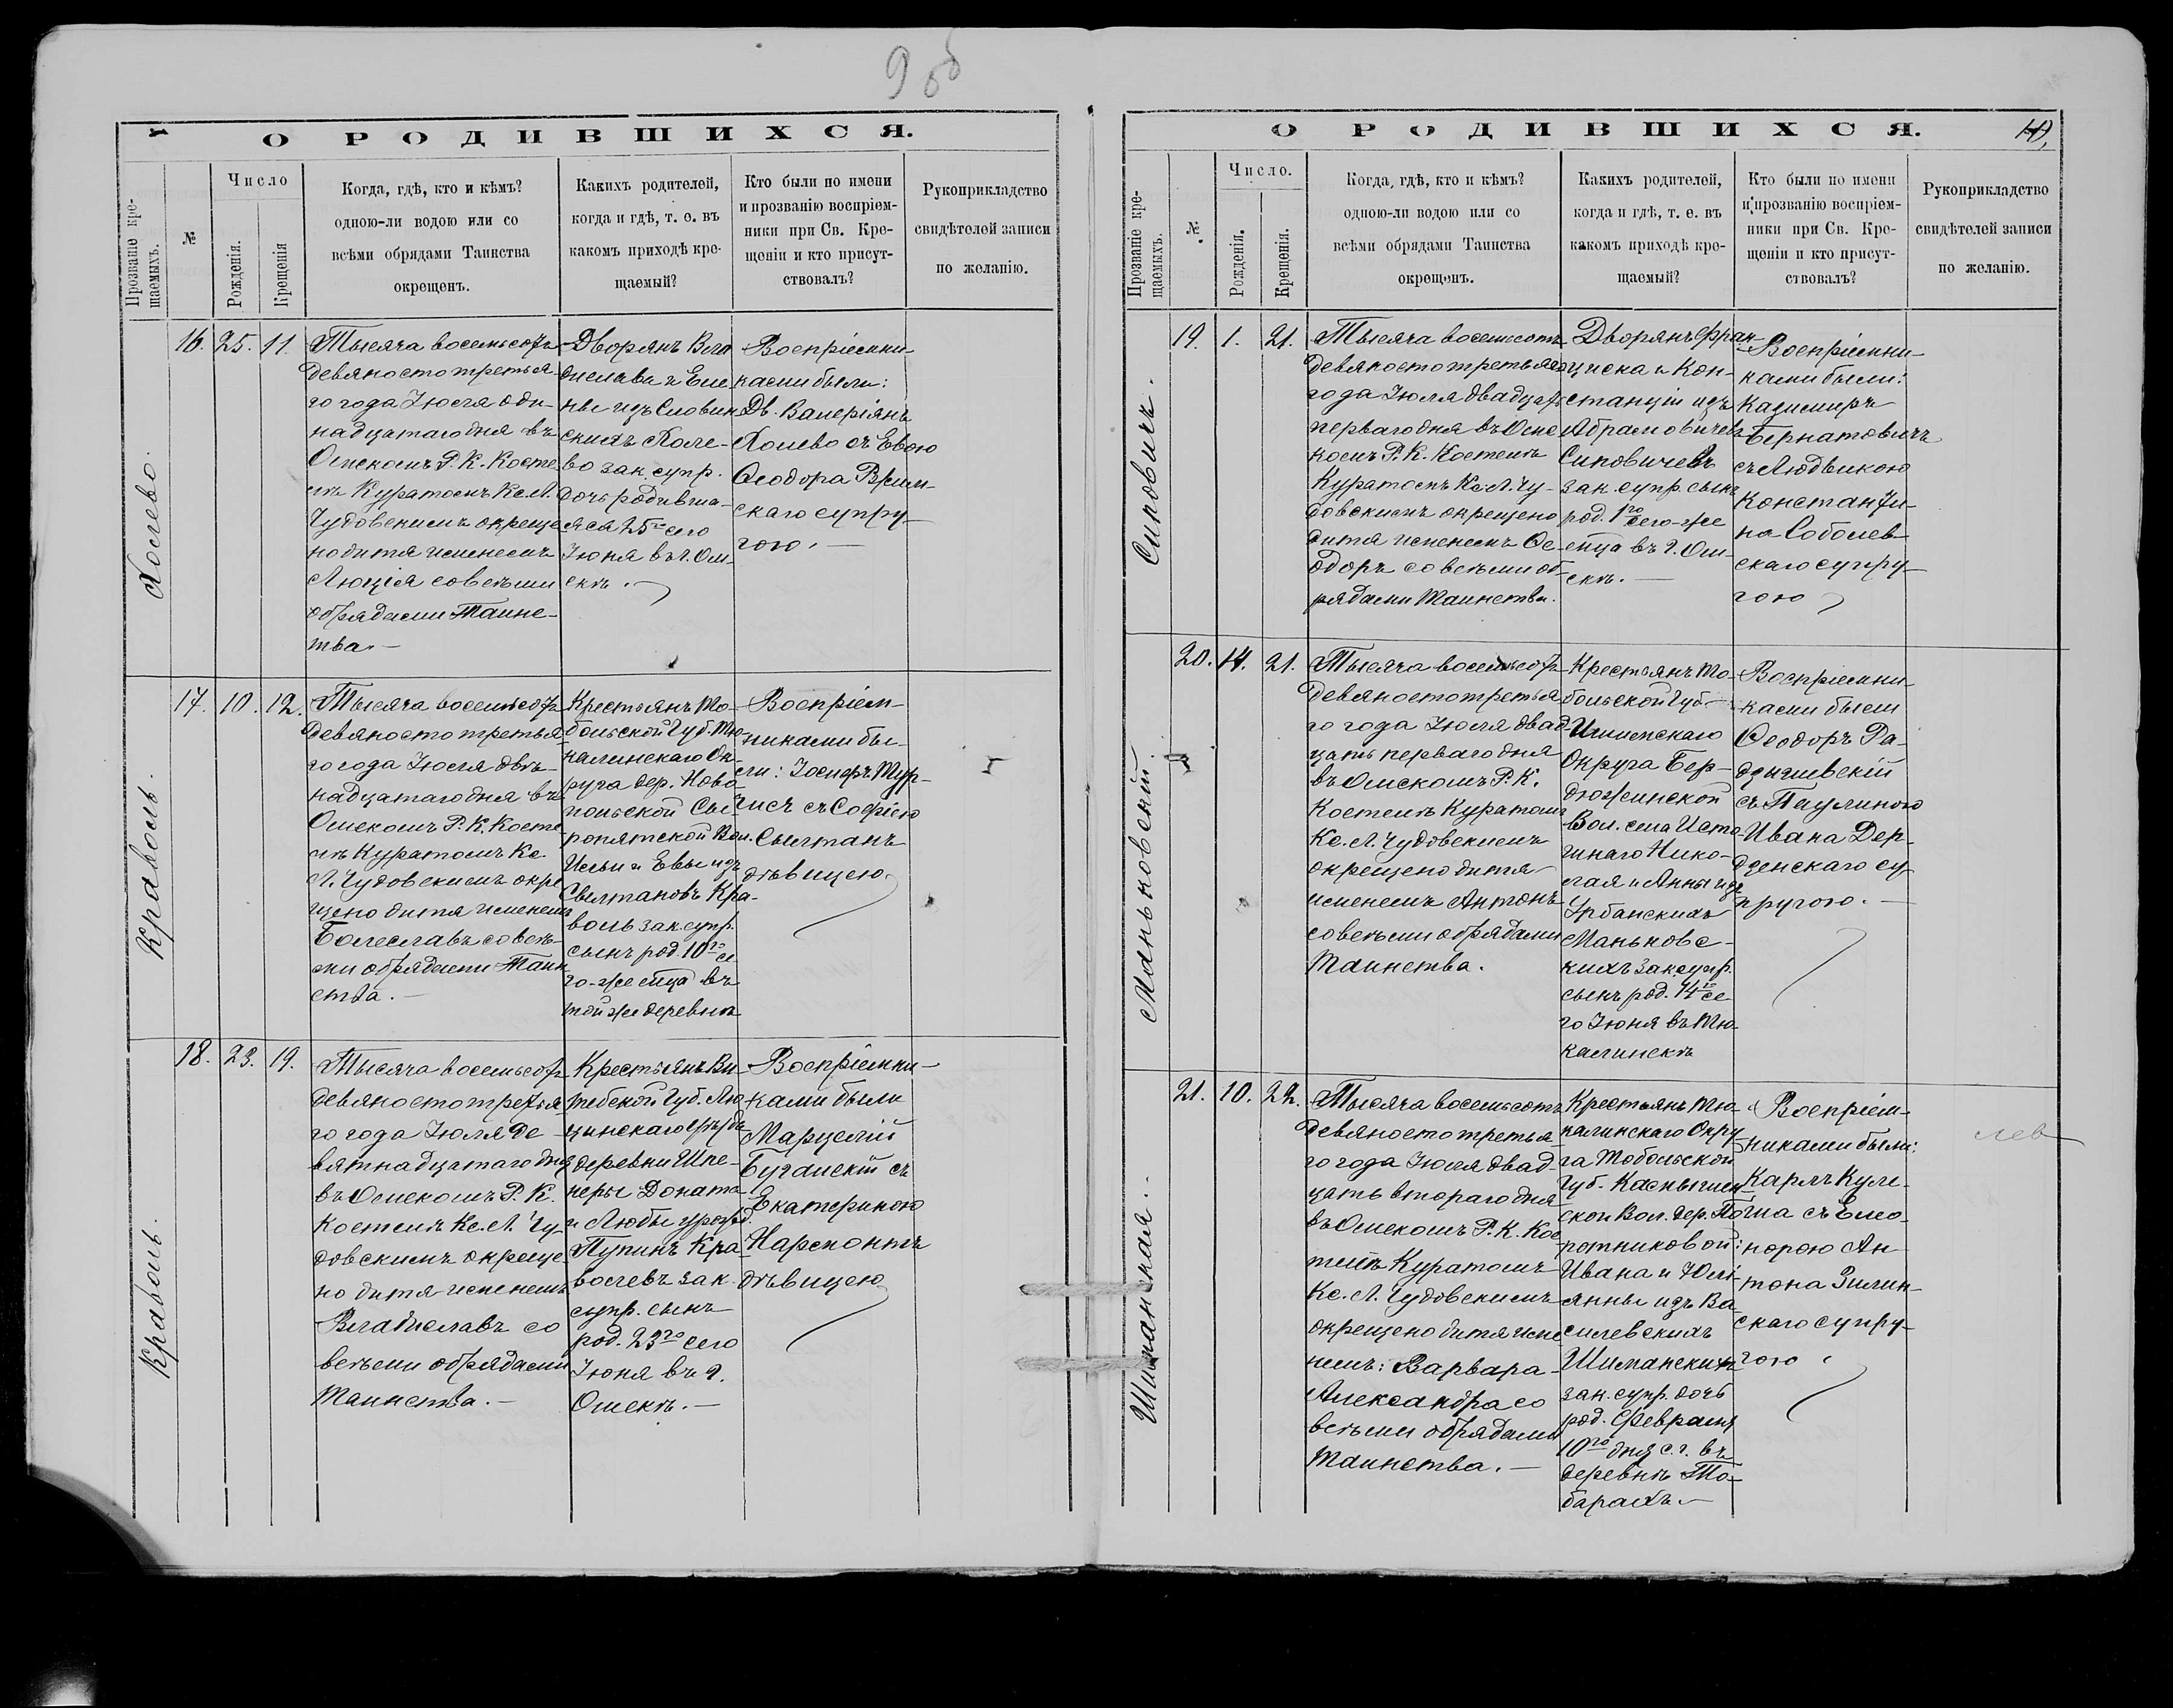 9 об
О РОДИВШИХСЯ.
Прозваніе кре-
щаемыхъ.
№
Число
Рожденія.
Крещенія
Когда, гдѣ, кто и кѣмъ?
одною-ли водою или со
всѣми обрядами Таинства
окрещенъ.
Какихъ родителей,
когда и гдѣ, т. е. въ
какомъ приходѣ кре-
щаемый?
Кто были по имени
и прозванію воспріем-
ники при Св. Кре-
щеніи и кто присут-
ствовалъ?
Рукоприкладство
свидѣтелей записи
по желанію.
16. 25. 11.
Тысяча восемьсотъ
девяносто третья-
го года Іюля оди-
надцатаго дня въ
Омскомъ Р. К. Косте
лѣ Куратомъ Кс. Л.
Чудовскимъ окреще
но дитя именемъ
Люція со всѣми
обрядами Таинс-
тва. —
Дворянъ Вла
дислава и Еле
ны изъ Словин
скихъ
во зак. супр.
дочь родивша-
яся 25го сего
Іюня въ г. Ом-
скѣ. —
Воспріемни-
ками были:
Дв. Валеріянъ
съ Евою
Ѳеодора
скаго супру-
гою. —
17. 10. 12.
Краволь.
Тысяча восемьсотъ
девяносто третья-
го года Іюля двѣ-
надцатаго дня въ
Омскомъ Р. К. Косте
лѣ Куратомъ Кс.
Л. Чудовскимъ окре
щено дитя именемъ
Болеславъ со всѣ-
ми обрядами Таин
ства. —
Крестьянъ То-
больской Губ. Тю-
калинскаго Ок-
руга дер. Ново-
польской Сы-
ропятской Вол.
Ильи и Евы изъ
Свилтановъ Кра-
воль зак. супр.
сынъ род. 10го се
го-же мца въ
той же деревнѣ
Воспріем-
никами бы-
ли: Іосифъ Тур-
чисъ съ Софіею
Свилтанъ
дѣвицею.
18. 23. 19.
Краволь.
Тысяча восемьсотъ
девяносто третья
го года Іюля де-
вятнадцатаго дня
въ Омскомъ Р. К.
Костелѣ Кс. Л. Чу-
довскимъ окреще-
но дитя именемъ
Владиславъ со
всѣми обрядами
Таинства. —
Крестьянъ Ви-
тебской Губ. Лю-
цинскаго уѣзда
деревни Шке-
неры Доната
и Любы урожд.
Пупинъ Кра-
волевъ зак.
супр. сынъ
род. 23го сего
Іюня въ г.
Омскѣ. —
Воспріемни-
ками были
Марцелій
Буганскій съ
Екатериною
Нарспонтъ
дѣвицею
О РОДИВШИХСЯ.
10,
Прозваніе кре-
щаемыхъ.
№
Число.
Рожденія.
Крещенія.
Когда, гдѣ, кто и кѣмъ?
одною-ли водою или со
всѣми обрядами Таинства
окрещенъ.
Какихъ родителей,
когда и гдѣ, т. е. въ
какомъ приходѣ кре-
щаемый?
Кто были по имени
и прозванію воспріем-
ники при Св. Кре-
щеніи и кто присут-
ствовалъ?
Рукоприкладство
свидѣтелей записи
по желанію.
19. 1. 21.
Синовичъ.
Тысяча восемьсотъ
девяносто третьяго
года Іюля двадцать
перваго дня въ Омс
комъ Р. К. Костелѣ
Куратомъ Кс. Л. Чу-
довскимъ окрещено
дитя именемъ Ѳе-
одоръ со всѣми об-
рядами Таинства.
Дворянъ Фран-
циска и Кон-
станціи изъ
Абрамовичевъ
Синовичевъ
зак. супр. сынъ
род. 1го сего-же
мца въ г. Ом-
скѣ. —
Воспріемни-
ками были:
Казимиръ
Бернатовичъ
съ Людвикою
Константи-
на Соболев-
скаго супру-
гою
20. 14. 21.
Маньковскій.
Тысяча восемьсотъ
девяносто третья
го года Іюля двад
цать перваго дня
въ Омскомъ Р. К.
Костелѣ Куратомъ
Кс. Л. Чудовскимъ
окрещено дитя
именемъ Антонъ
со всѣми обрядами
Таинства.
Крестьянъ То-
больской Губ. —
Ишимскаго
Округа Бер-
дюжинской
Вол. села Исто-
шнаго Нико-
лая и Анны изъ
Урбанскихъ
Маньковс-
кихъ зак. супр.
сынъ род. 14го се-
го Іюня въ Тю-
калинскѣ
Воспріемни-
ками были
Ѳеодоръ Ра-
съ Паулиною
Ивана Дер-
су-
пругою. —
21. 10. 22.
Шиманская.
Тысяча восемьсотъ
девяносто третья-
го года Іюля двад
цать втораго дня
въ Омскомъ Р. К. Кос
телѣ Куратомъ
Кс. Л. Чудовскимъ
окрещено дитя име
немъ: Варвара-
Александра со
всѣми обрядами
Таинства. —
Крестьянъ Тю-
калинскаго Окру
га Тобольской
Губ.
ской Вол. дер. По-
ротниковой:
Ивана и Юлі-
янны изъ Ва-
силевскихъ
Шиманскихъ
зак. супр. дочь
род. Февраля
10го дня с. г. въ
деревнѣ
Воспріем-
никами были:
Карлъ Куле-
ша съ Елео-
норою Ан-
тона Зилин-
скаго супру-
гою